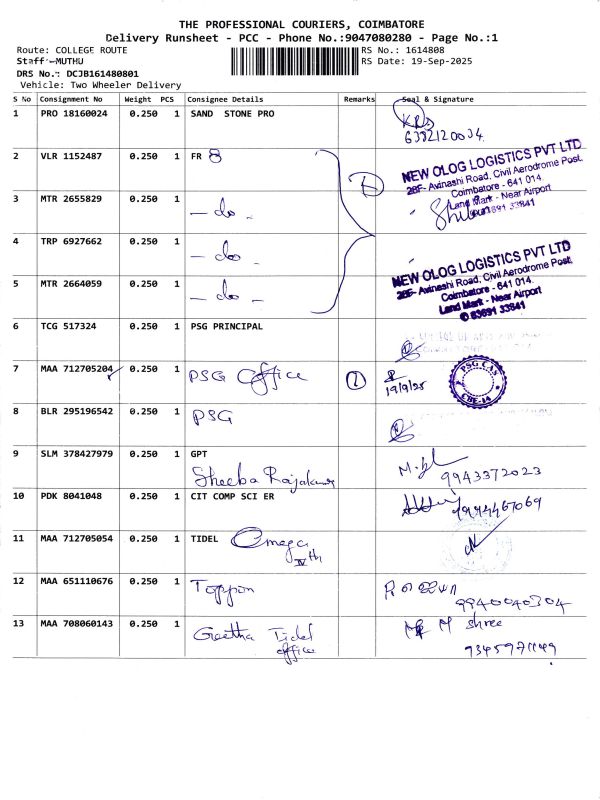 THE PROFESSIONAL COURIERS, COIMBATORE
Delivery Runsheet - PCC - Phone No.:9047080280 - Page No.:1
Route: COLLEGE ROUTE
RS No.: 1614808
Staff:-MUTHU
RS Date: 19-Sep-2025
DRS No.: DCJB161480801
Vehicle: Two Wheeler Delivery
S No Consignment No Weight PCS Consignee Details Remarks Seal & Signature
1 PRO 18160024 0.250 1 SAND STONE PRO
6382120034
2 VLR 1152487 0.250 1 FR 8
NEW OLOG LOGISTICS PVT LTD
28F- Avinashi Road, Civil Aerodrome Post,
Coimbatore - 641 014.
Land Mark - Near Airport
3 MTR 2655829 0.250 1 - do -
4 TRP 6927662 0.250 1 - do -
NEW OLOG LOGISTICS PVT LTD
28F- Avinashi Road, Civil Aerodrome Post,
Coimbatore - 641 014.
Land Mark - Near Airport
83691 33841
5 MTR 2664059 0.250 1 - do -
6 TCG 517324 0.250 1 PSG PRINCIPAL
7 MAA 712705204 0.250 1 PSG Office 2 19/9/25
PSG CAS
CBE-14
8 BLR 295196542 0.250 1 PSG
9 SLM 378427979 0.250 1 GPT
Sheeba Rajakumar
9943372023
10 PDK 8041048 0.250 1 CIT COMP SCI ER
9994467069
11 MAA 712705054 0.250 1 TIDEL Omega
IVth
12 MAA 651110676 0.250 1 Toppon
9940040304
13 MAA 708060143 0.250 1 Geetha Tidel
office
M shree
9345971149